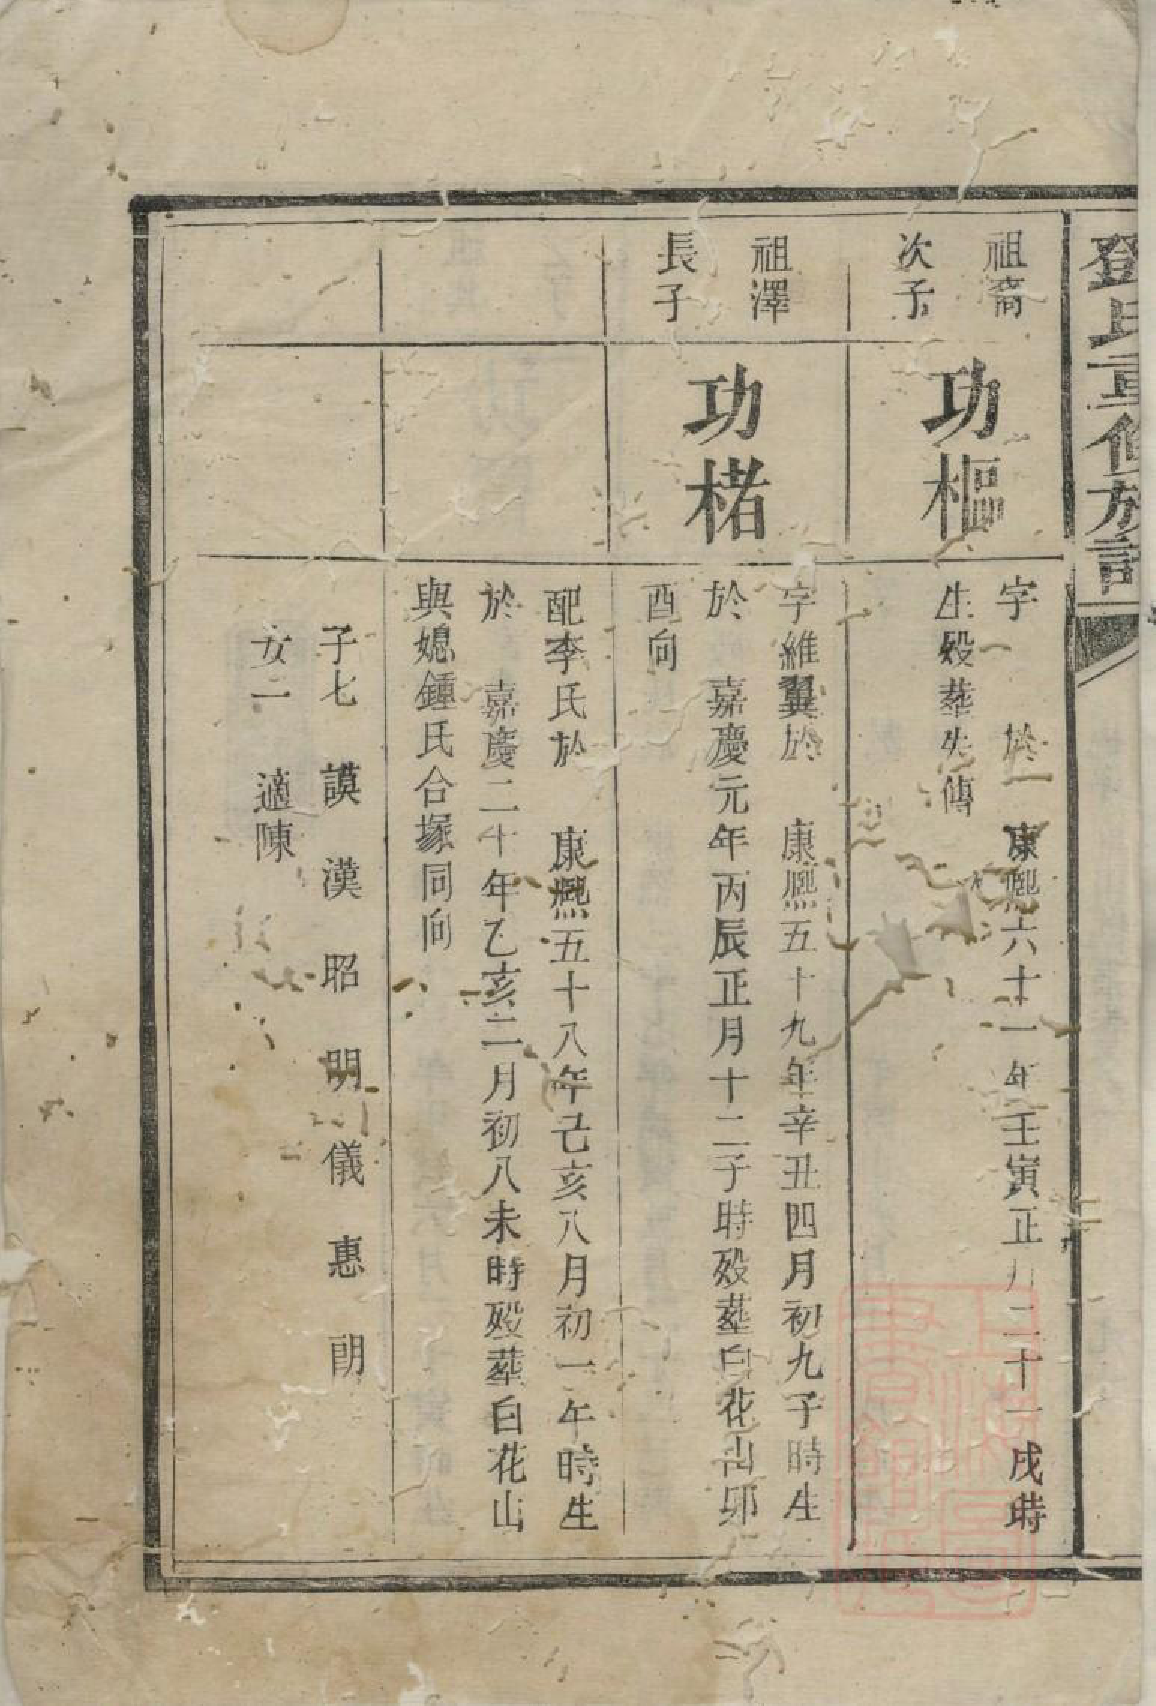 鄧氏重修族譜
祖裔
次子
功樞
字 於 康熙六十一年壬寅正月二十一戌時
生殁塟失傳
祖澤
長子
功楮
字維翼於 康熙五十九年辛丑四月初九子時生
於 嘉慶元年丙辰正月十二子時殁塟白花山卯
酉向
配李氏於 康熙五十八年己亥八月初一午時生
於 嘉慶二十年乙亥二月初八未時殁塟白花山
與媳鍾氏合塚同向
子七 謨 漢 昭 明 儀 惠 朗
女二 適陳